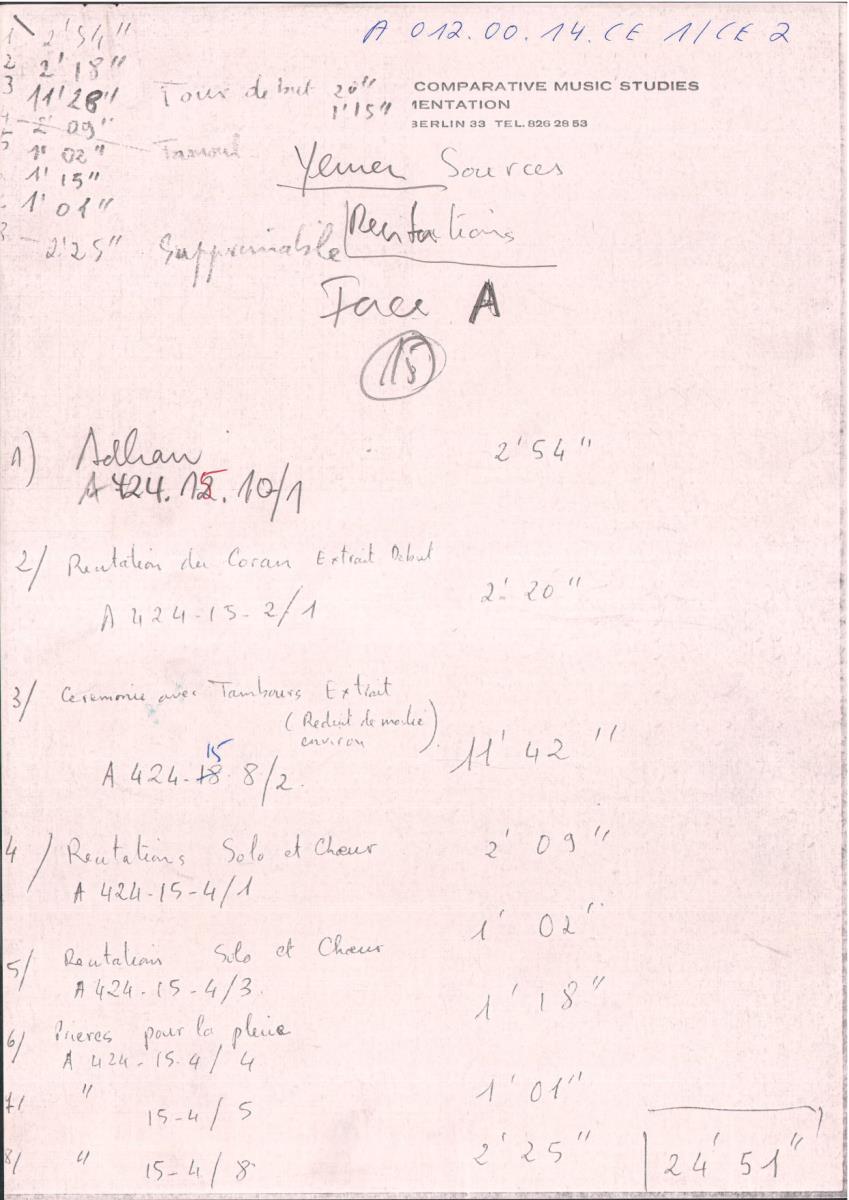 A 012.00.14.CE 1/CE 2
1 2'54"
2 2'18"
3 11'28" Tour debut 20"
1'15"
4 2'09"
5 1'02"
1'15"
1'01"
2'25" Supprimable
COMPARATIVE MUSIC STUDIES
MENTATION
BERLIN 33 TEL. 826 28 53
Yemen Sources
Recitations
Face A
15
1) Adhan 2'54"
A 424.15.10/1
2/ Recitation du Coran Extrait Debut
A 424-15-2/1 2'20"
3/ Ceremonie avec Tambours Extrait
(Reduit de moitié
environ) 11'42"
15
A 424-18-8/2.
4/ Recitations Solo et Chœur 2'09"
A 424-15-4/1
5/ Recitation Solo et Chœur 1'02"
A 424-15-4/3.
6/ Prieres pour la pluie 1'18"
A 424-15.4/4
7/ " 15-4/5 1'01"
8/ " 15-4/8 2'25"
24'51"